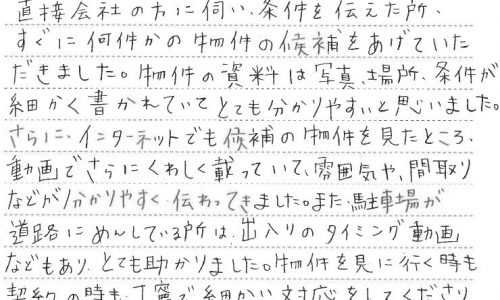 直接会社の方に伺い、条件を伝えた所、
すぐに何件かの物件の候補をあげていた
だきました。物件の資料は写真、場所、条件が
細かく書かれていてとても分かりやすいと思いました。
さらに、インターネットでも候補の物件を見たところ、
動画でさらにくわしく載っていて、雰囲気や、間取り
などが分かりやすく、伝わってきました。また、駐車場が
道路にめんしている所は、出入りのタイミング動画
などもあり、とても助かりました。物件を見に行く時も
契約の時も、丁寧で細かい対応をしてくださり